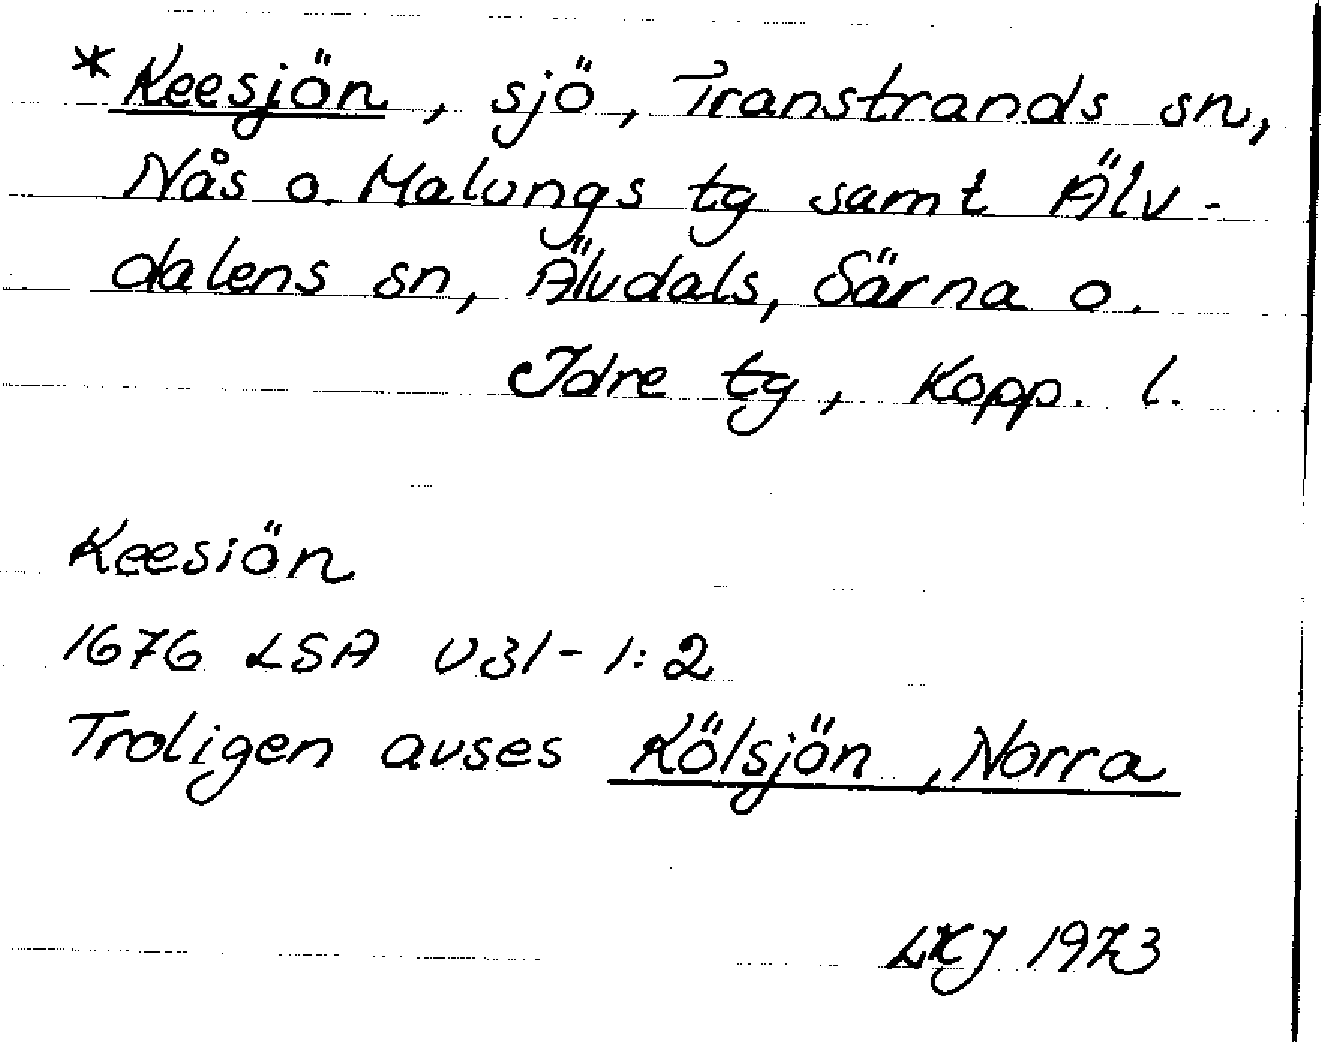 *Keesjön, sjö, Transtrands sn,
Nås o. Malungs tg samt Älv-
dalens sn, Älvdals, Särna o.
Idre tg, Kopp. l.
Keesiön
1676 LSA U31-1:2
Troligen avses Kölsjön, Norra
LKJ 1973